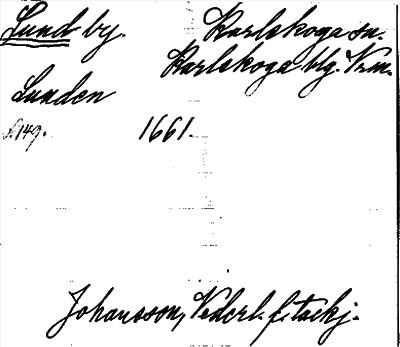 Lund by. Karlskoga sn.
Karlskoga blg. Vrm.
Lunden
f. 149. 1661.
Johansson, Vederl. f. tackj.